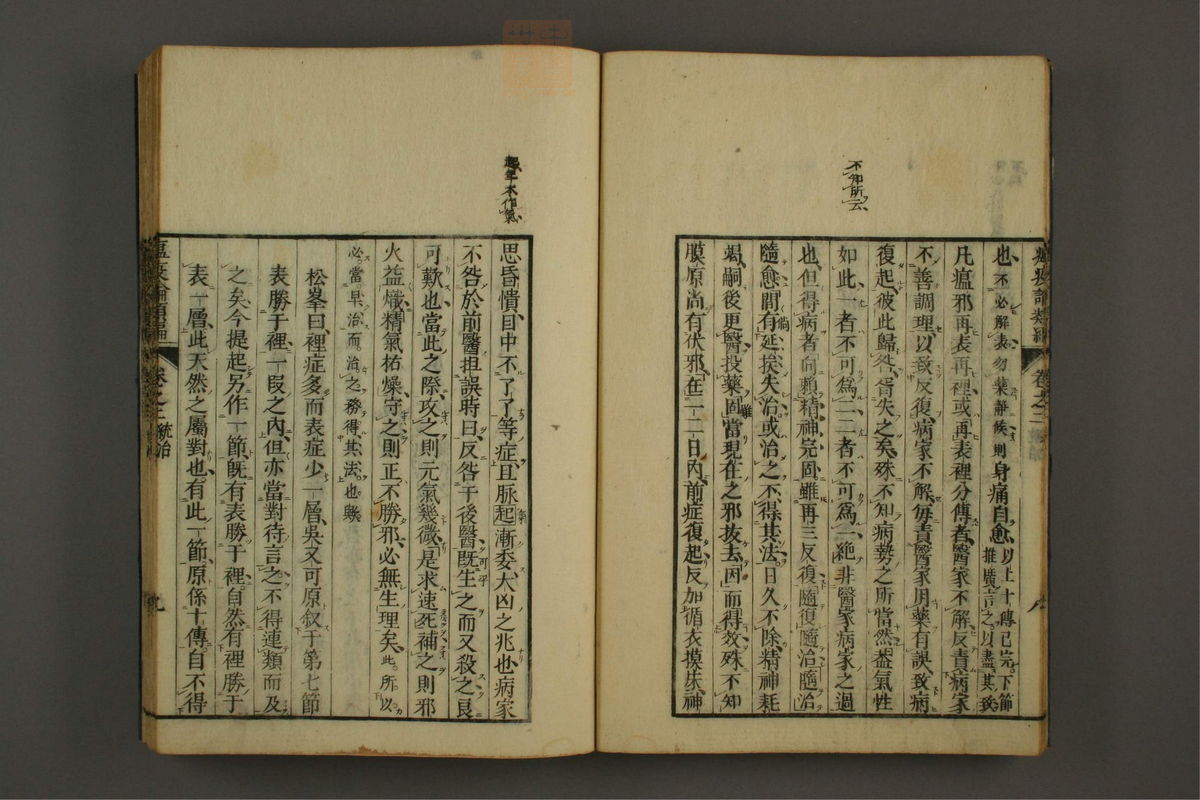 不知所云
也不必解表勿藥靜候則身痛自愈以上十傳已完下節推廣言之以盡其致
凡瘟邪再表再裡或再表裡分傳者醫家不解反責病家
不善調理以致反復病家不解每責醫家用藥有誤致病
復起彼此歸咎胥失之矣殊不知病勢之所當然蓋氣性
如此一者不可爲二二者不可爲一絶非醫家病家之過
也但得病者向賴精神完固雖再三反復隨復隨治隨治
隨愈間有延挨失治或治之不得其法日久不除精神耗
竭嗣後更醫投藥固當現在之邪拔去因而得效殊不知
膜原尚有伏邪在一二日內前症復起反加循衣摸床神
起牟本作氣
思昏憒目中不了了等症且脈起漸委大凶之兆也病家
不咎於前醫担誤時日反咎于後醫既生之而又殺之良
可歎也當此之際攻之則元氣幾微是求速死補之則邪
火益熾精氣祐燥守之則正不勝邪必無生理矣此所以
必當早治而治之務得其法也歟
松峯曰裡症多而表症少一層吳又可原叙于第七節
表勝于裡一段之内但亦當對待言之不得連類而及
之矣今提起另作一節既有表勝于裡自然有裡勝于
表一層此天然之屬對也有此一節原係十傳自不得
瘟疫論類編
卷之二
統治
九